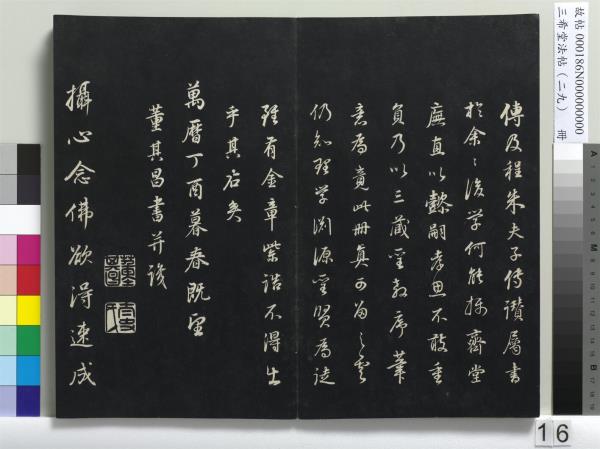 故帖 000186N000000000
三希堂法帖(二九) 冊
傳及程朱夫子傳讚屬書
於余〻後學何能摛齊堂
廡直以懿嗣孝思不敢重
負乃以三藏聖教序筆
意為竟此冊真可為之
仍知理学淵源聖贤為徒
雖有金章紫誥不得出
乎其右矣
萬曆丁酉暮春既望
董其昌書并跋
攝心念佛欲得速成
A
M
B
16